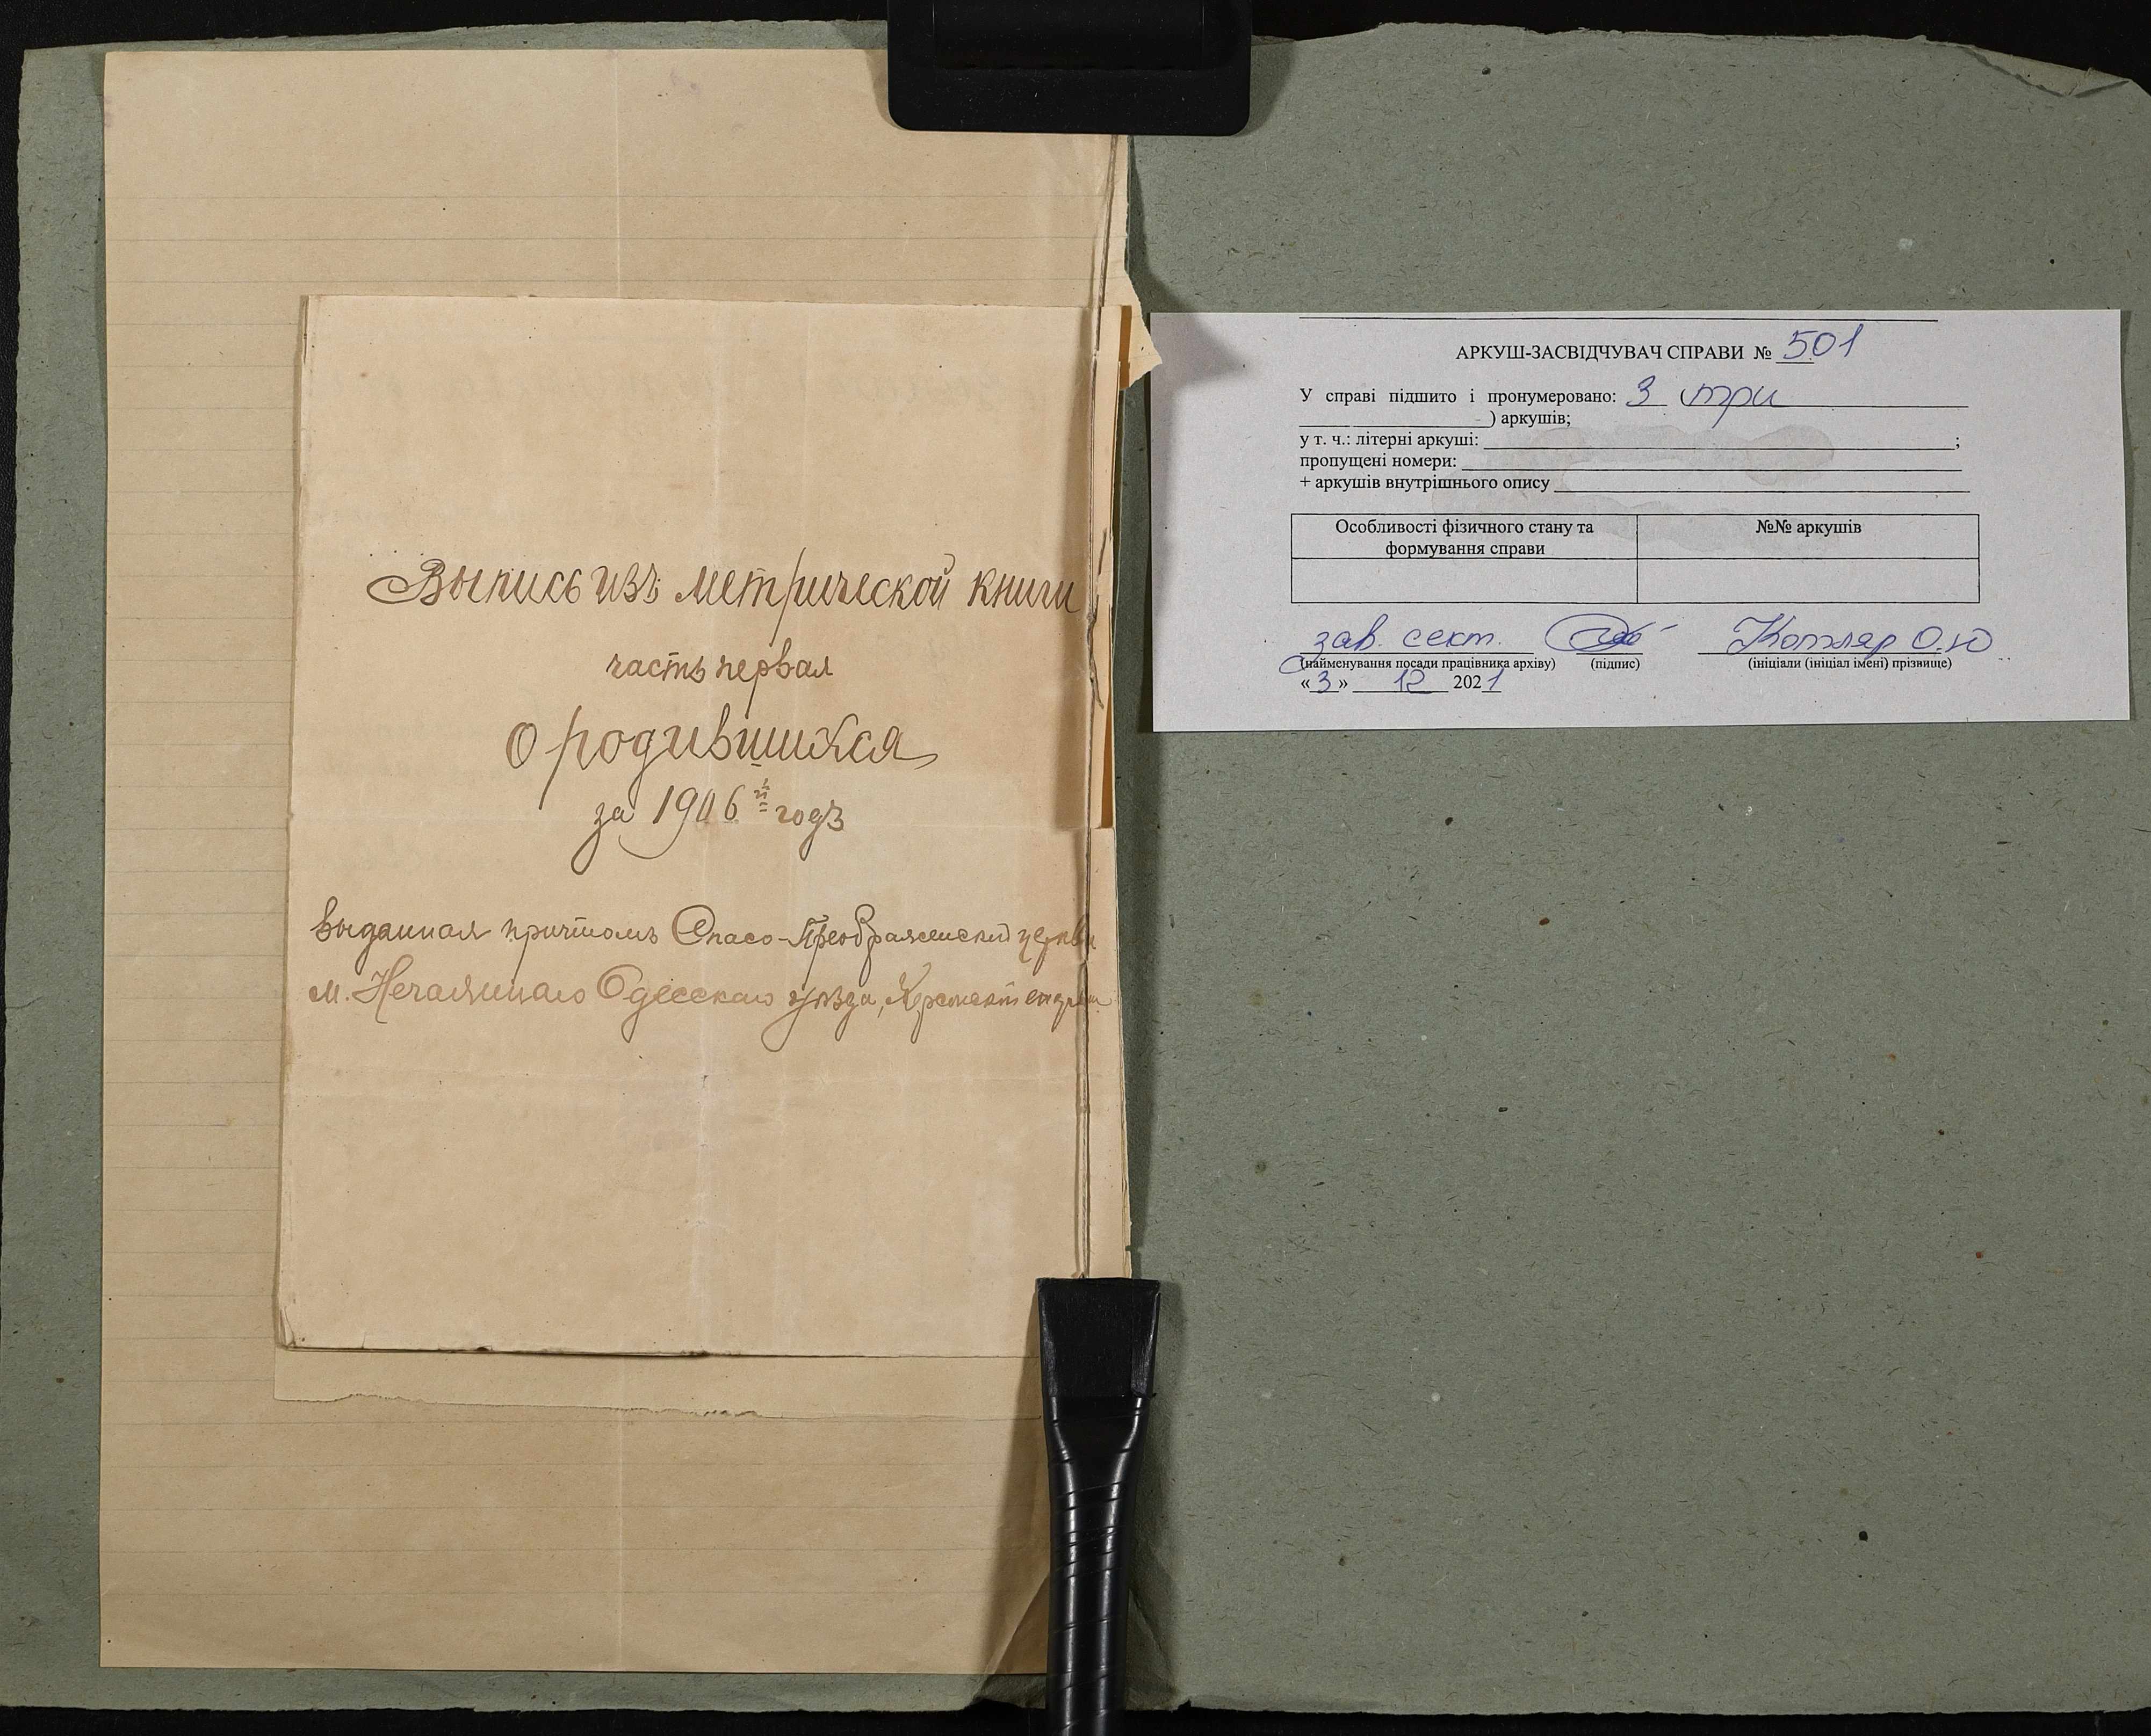 Выпись изъ метрической книги
часть первая
О родившихся
за 1906 й годъ
выданная причтомъ Спасо-Преображенской церкви
м. Нечаяннаго Одесскаго уѣзда, Херсонской
АРКУШ-ЗАСВІДЧУВАЧ СПРАВИ № 501
У справі підшито і пронумеровано: 3 (три
) аркушів;
у т. ч.: літерні аркуші: ;
пропущені номери:
+ аркушів внутрішнього опису
Особливості фізичного стану та №№ аркушів
формування справи
зав. сект. Котляр О.Ю
(найменування посади працівника архіву) (підпис) (ініціали (ініціал імені) прізвище)
«3» 12 2021